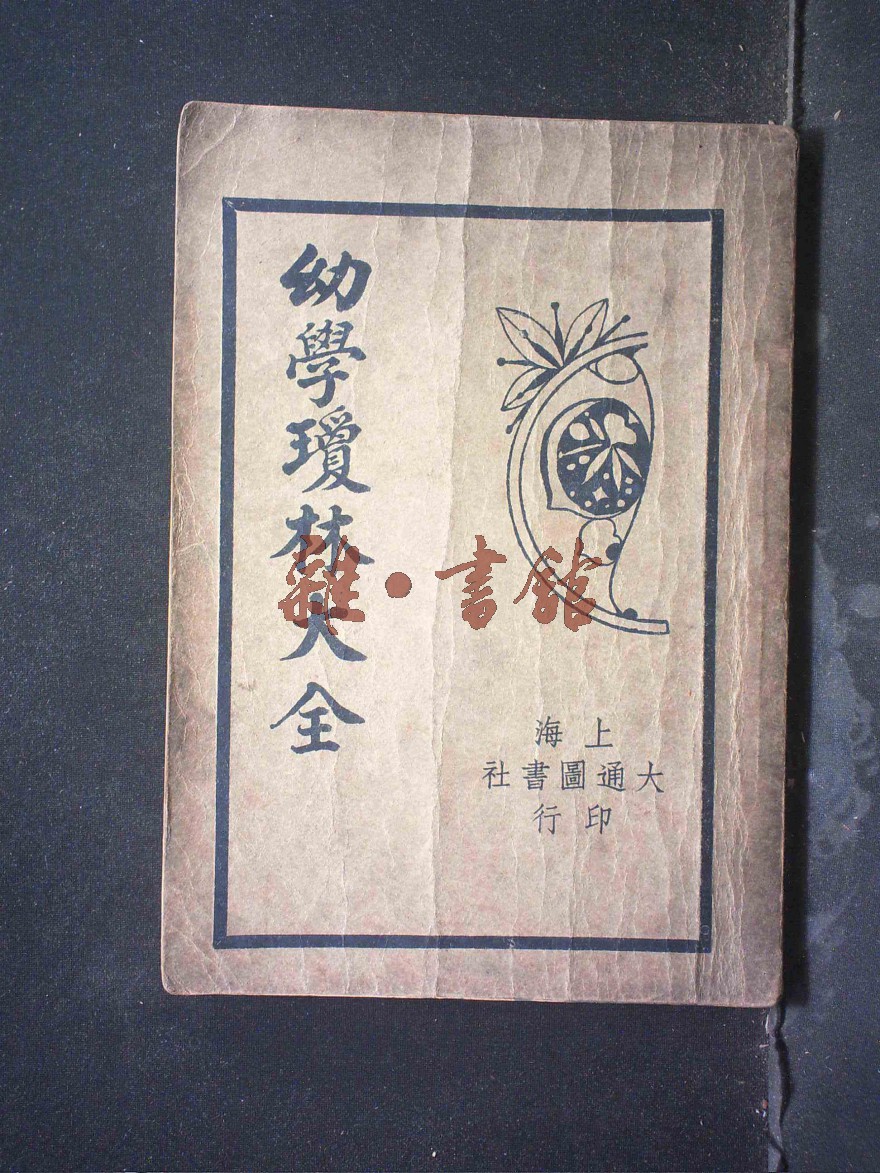 幼學瓊林大全
上海
大通圖書社
印行
雜·書館